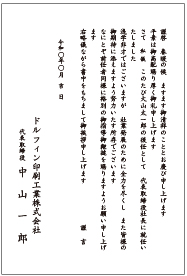 謹啓 春暖の候 ますます御清祥のこととお慶び申し上げます
平素は御高配賜り厚く御礼申し上げます
さて 私儀 このたび大山太一郎の後任として 代表取締役社長に就任い
たしました
遂学非才ではございますが 社業発展のために全力を尽くし また皆様の
御期待に添えますよう努力いたす所存でございます
なにとぞ前任者同様に格別の御指導御鞭撻を賜りますようお願い申し上げ
ます
右略儀ながら書中をもちまして御挨拶申し上げます
謹言
令和〇年〇月吉日
ドルフィン印刷工業株式会社
代表取締役 中山一郎